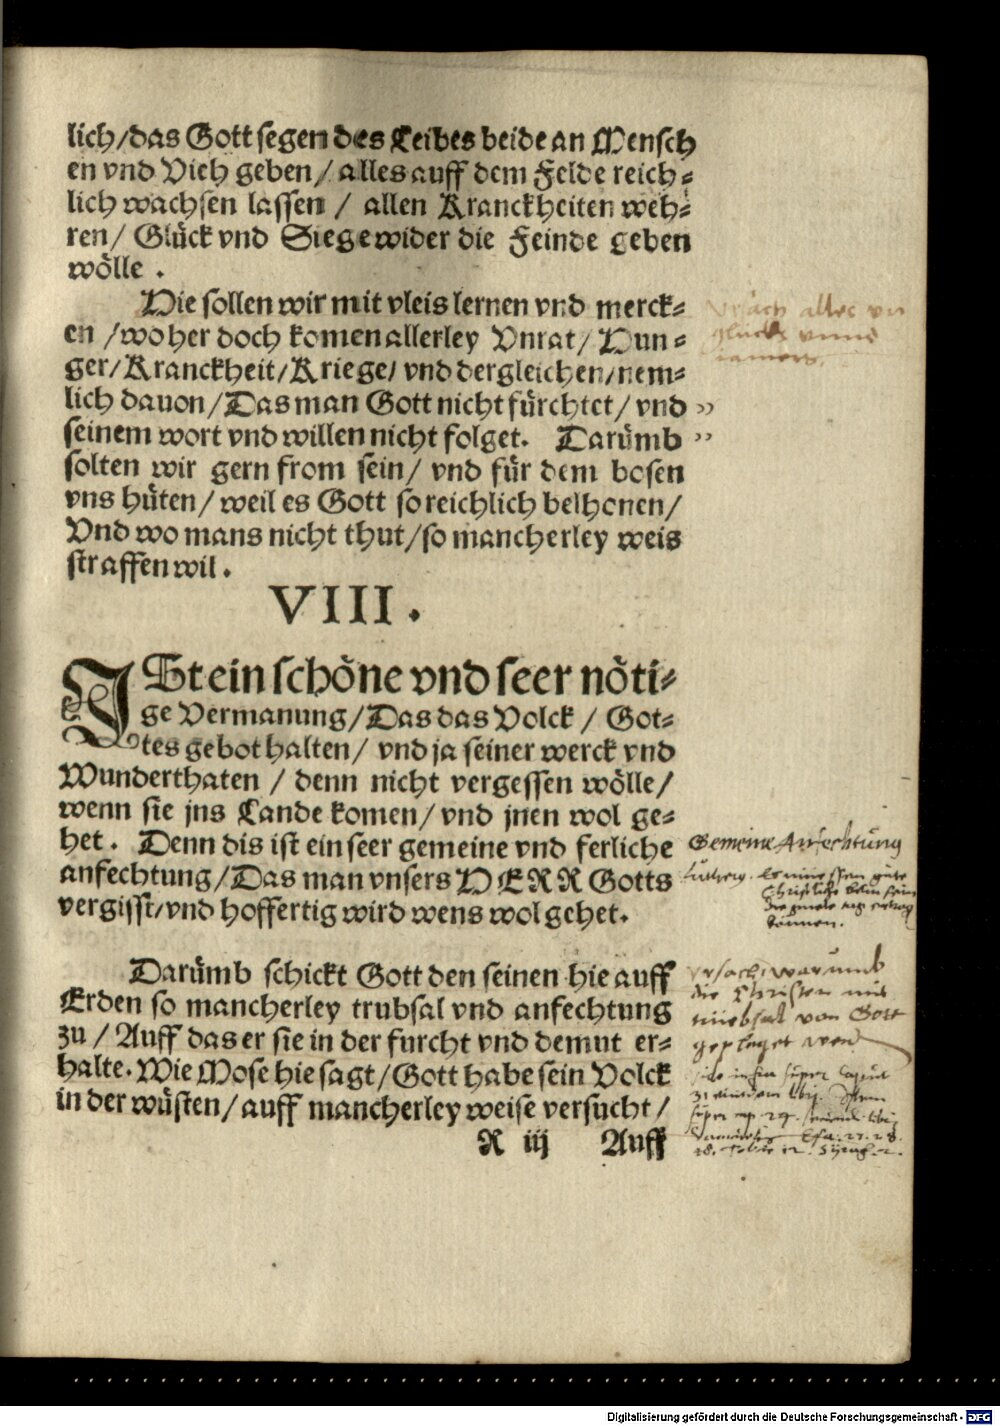 lich/das Gott segen des Leibes beide an Mensch
en vnd Vieh geben/ alles auff dem Felde reich⸗
lich wachsen lassen / allen Kranckheiten weh⸗
ren/ Glück vnd Siege wider die Feinde geben
wölle .
Hie sollen wir mit vleis lernen vnd merck⸗
en /wo her doch komen allerley Vnrat/ Hun⸗
ger/ Kranckheit/ Kriege/ vnd dergleichen/nem⸗
lich dauon/ Das man Gott nicht fürchtet/ vnd
seinem wort vnd willen nicht folget. Darümb
solten wir gern from sein/ vnd für dem bosen
vns hüten/ weil es Gott so reichlich belhonen/
Vnd wo mans nicht thut/so mancherley weis
straffen wil .
VIII .
ISt ein schöne vnd seer nöti⸗
ge Vermanung/ Das das Volck / Got⸗
tes gebot halten/ vnd ja seiner werck vnd
Wunderthaten / denn nicht vergessen wölle/
wenn sie jns Lande komen/ vnd jnen wol ge⸗
het . Denn dis ist ein seer gemeine vnd ferliche
anfechtung/ Das man vnsers HERR Gotts
vergisst/vnd hoffertig wird wens wol gehet.
Darümb schickt Gott den seinen hie auff
Erden so mancherley trubsal vnd anfechtung
zu/ Auff das er sie in der furcht vnd demut er⸗
halte. Wie Mose hie sagt/ Gott habe sein Volck
in der wüsten/ auff mancherley weise versucht /
R iij Auff
allec vn
glucks vnnd
Gemeine Anfechtung
gute
können.
vrsach warumb
die Christen mit
truebsal von Gott
geplaget werd
super caput
Digitalisierung gefördert durch die Deutsche Forschungsgemeinschaft - DFG